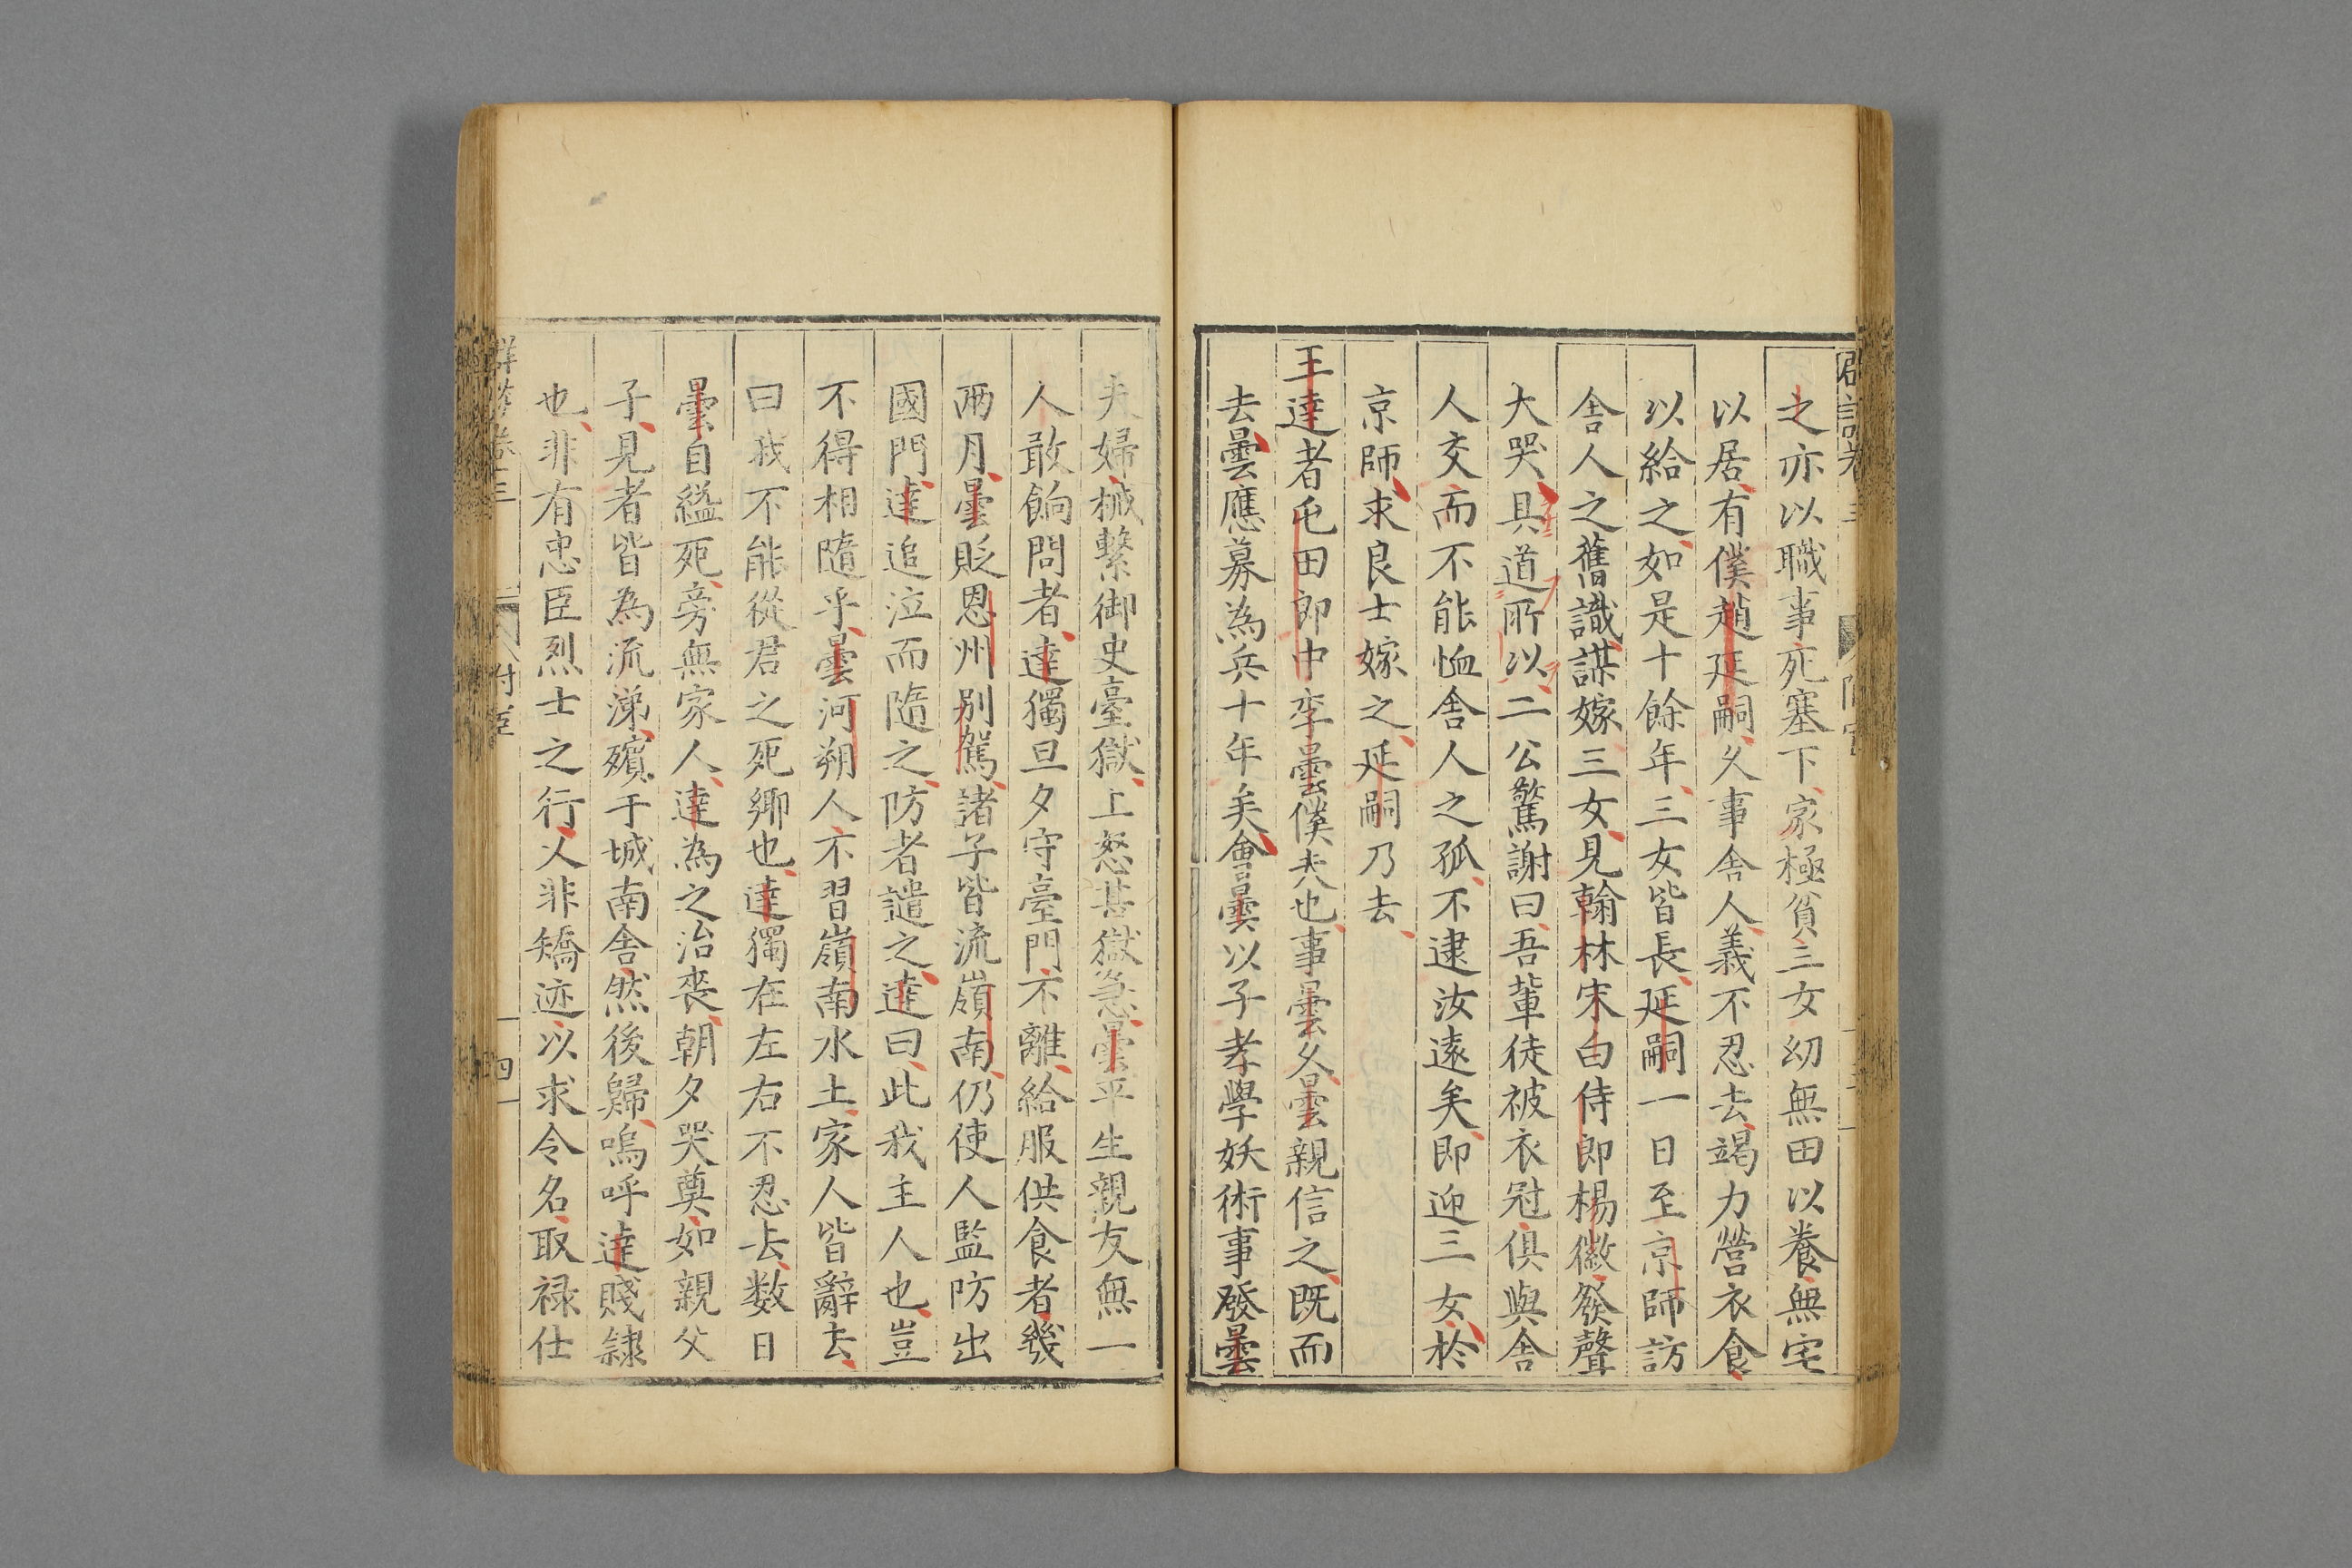 之亦以職事死塞下家極貧三女幼無田以養無宅
以居有僕趙延嗣久事舍人義不忍去竭力營衣食
以給之如是十餘年三女皆長延嗣一日至京師訪
舍人之舊識謀嫁三女見翰林宋白侍郎楊徽發聲
大哭具道所以二公驚謝曰吾輩徒被衣冠俱與舍
人交而不能恤舍人之孤不逮汝遠矣即迎三女於
京師求良士嫁之延嗣乃去
王達者屯田郎中李曇僕夫也事曇久曇親信之既而
去曇應募為兵十年矣會曇以子孝學妖術事發曇
夫婦械繫御史臺獄上怒甚獄急曇平生親友無一
人敢餉問者達獨旦夕守臺門不離給服供食者幾
兩月曇貶恩州別駕諸子皆流嶺南仍使人監防出
國門達追泣而隨之防者譴之達曰此我主人也豈
不得相隨乎曇河朔人不習嶺南水土家人皆辭去
曰我不能從君之死卿也達獨在左右不忍去数日
曇自縊死旁無家人達為之治喪朝夕哭奠如親父
子見者皆為流涕殯于城南舍然後歸嗚呼達賤隸
也非有忠臣烈士之行又非矯迹以求令名取禄仕
卷三
四